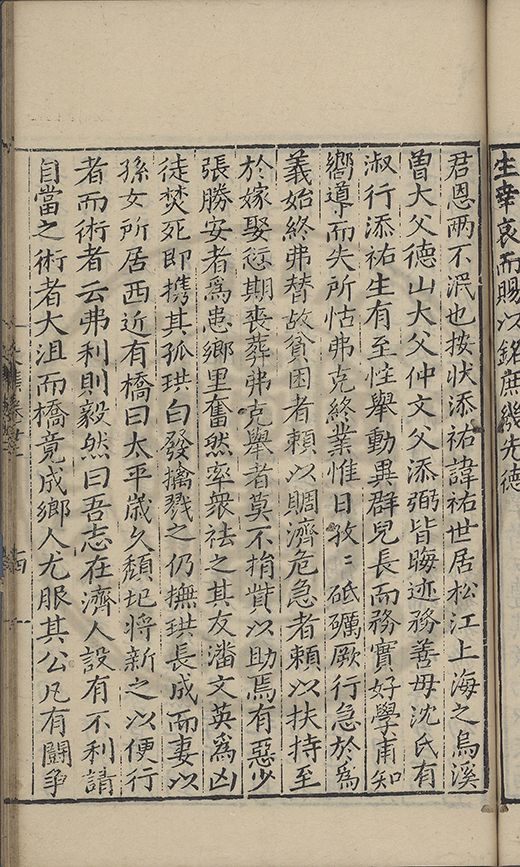 生幸哀而賜以銘庶幾先德
君恩兩不泯也按狀添祐諱祐世居松江上海之烏溪
曾大父德山大父仲文父添弼皆晦迹務善母沈氏有
淑行添祐生有至性舉動異群兒長而務實好學甫知
嚮導而失所怙弗克終業惟日孜〻砥礪厥行急於為
義始終弗替故貧困者賴以賙濟危急者賴以扶持至
於嫁娶愆期喪葬弗克舉者莫不捐貲以助焉有惡少
張勝安者為患鄉里奮然率衆祛之其友潘文英為凶
徒焚死即携其孤珙白發擒戮之仍撫珙長成而妻以
孫女所居西近有橋曰太平歲久頹圮將新之以便行
者而術者云弗利則毅然曰吾志在濟人設有不利請
自當之術者大沮而橋竟成鄉人尤服其公凡有鬪爭